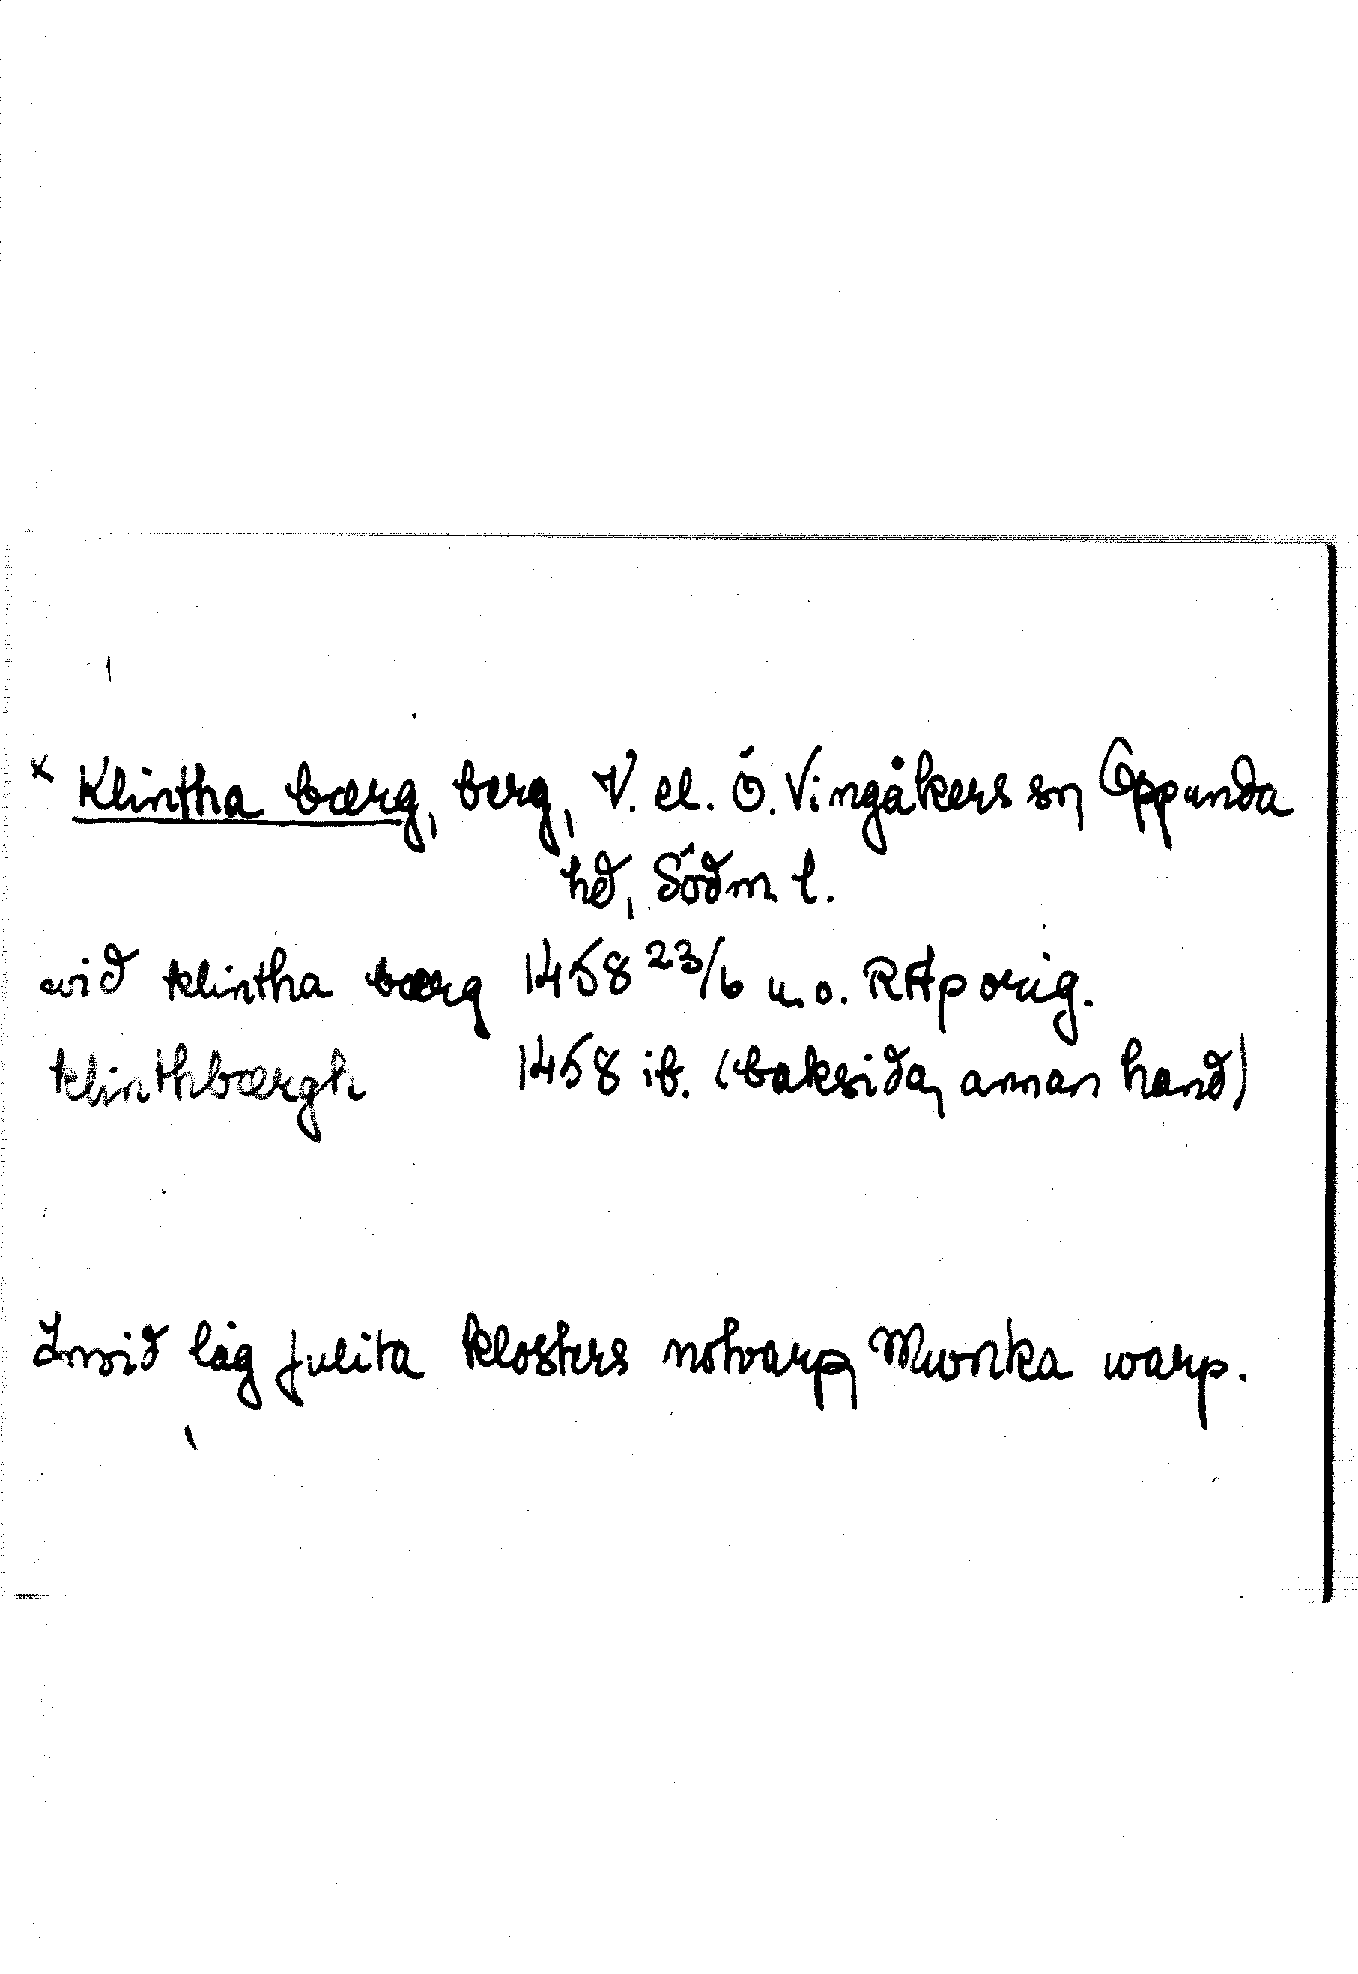 x Klintha bærg, berg, V. el. Ö. Vingåkers sn, Oppunda
hd, Södm l.
wid klintha bærg 1458 23/6 u.o. RAp orig.
klinthbærgh 1458 ib. (baksida, annan hand)
Invid låg Julita klosters notvarp, Mwnka warp.